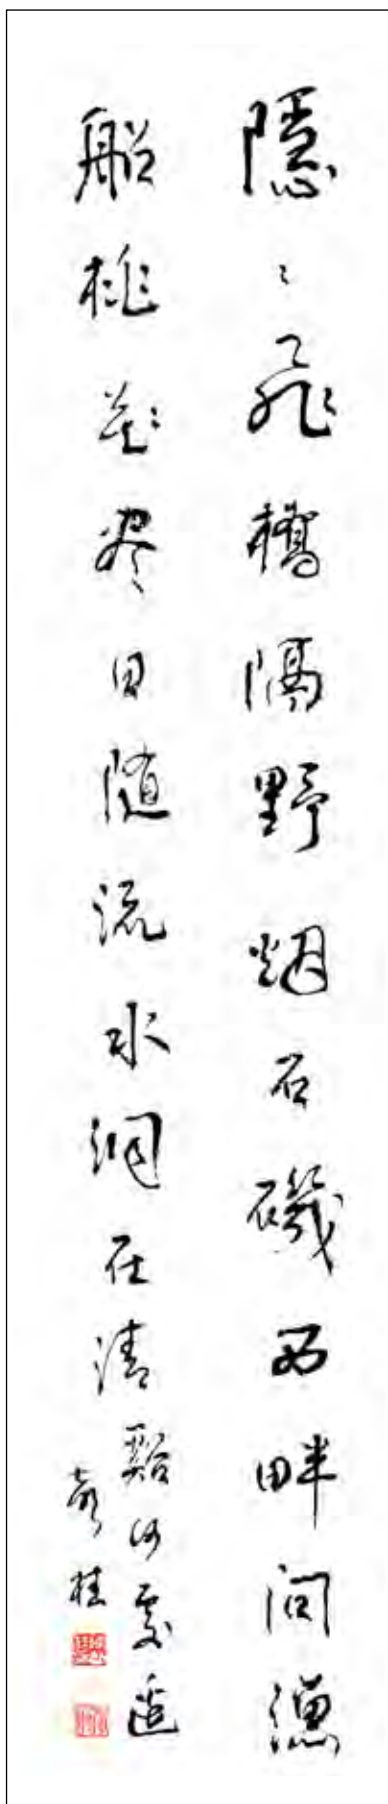 隱々飛橋隔野烟石磯西畔问漁
船桃花尽日随流水洞在清谿何處邊
桂